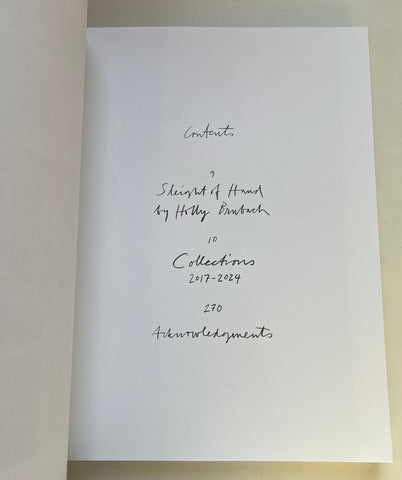 Contents
9
Sleight of Hand
by Holly Brubach
10
Collections
2017-2024
270
Acknowledgements